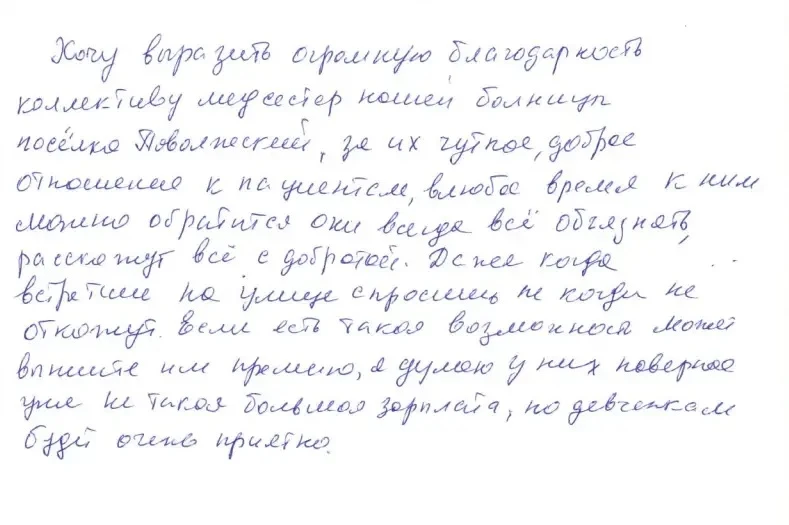 Хочу выразить огромную благодарность
коллективу медсестер нашей болницы
посёлка Поволжский, за их чуткое, доброе
отношение к пациентам, влюбое время к ним
можно обратится они всегда всё обгязнять,
расскажут всё с добротой. Даже когда
встретиш на улице спросишь не когды не
откажут. Если есть такая возможност может
выпишите им премию, я думаю у них наверное
уже не такая большая зарплата, но девченкам
будет очень приятно.